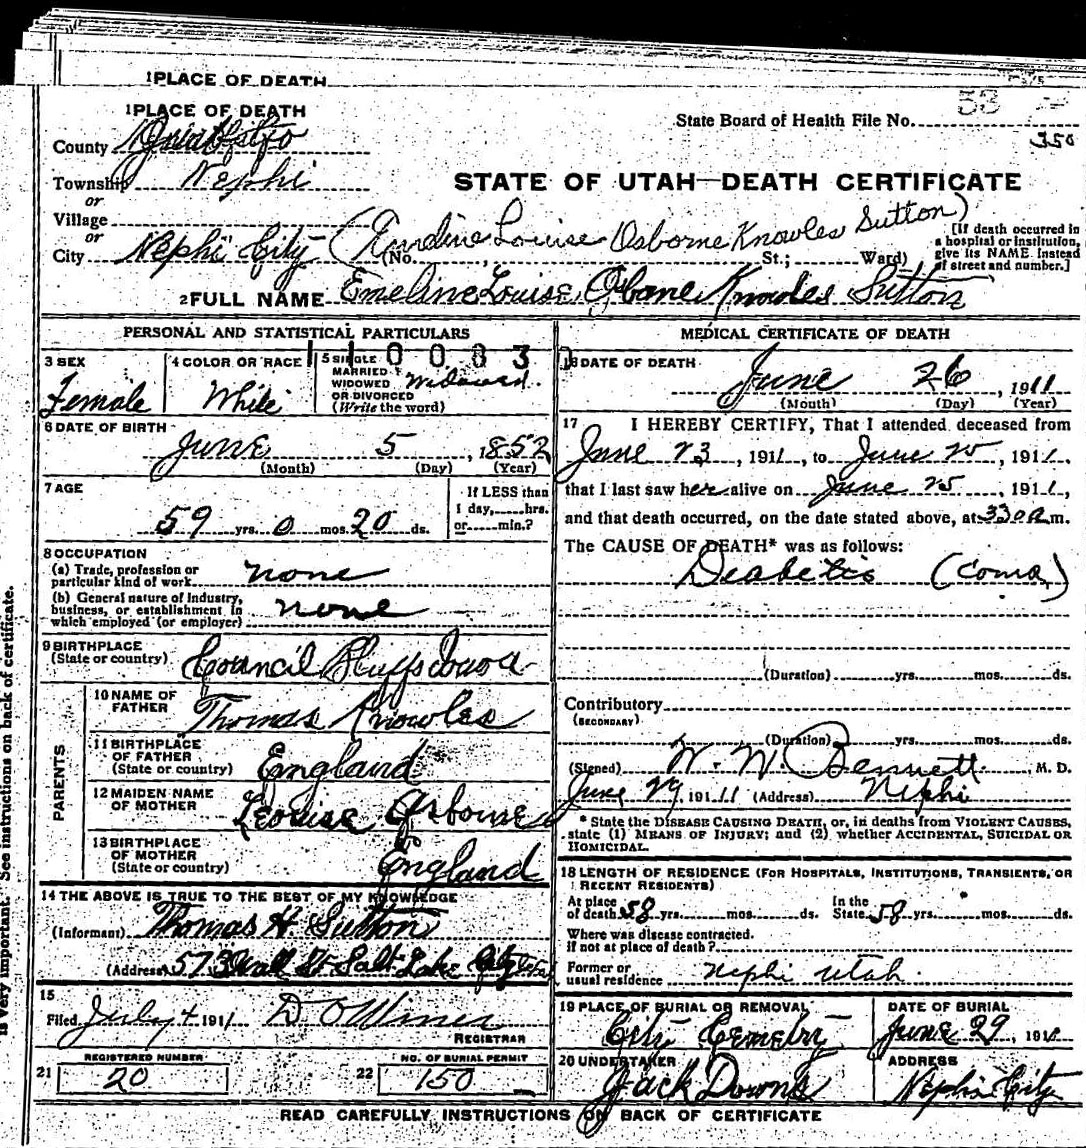 1 PLACE OF DEATH
1 PLACE OF DEATH
53
State Board of Health File No.
350
County
Township Nephi
or
STATE OF UTAH—DEATH CERTIFICATE
Village
or
(Louise Osborne Knowles Sutton)
City Nephi City (No. , St.; Ward)
[If death occurred in a hospital or institution, give its NAME instead of street and number.]
2 FULL NAME Emeline Louise Osbone Knowles Sutton
PERSONAL AND STATISTICAL PARTICULARS
3 SEX
Female
4 COLOR OR RACE
White
5 SINGLE
MARRIED
WIDOWED
OR DIVORCED
(Write the word)
Widowed
6 DATE OF BIRTH
June 5, 1852
(Month) (Day) (Year)
7 AGE
59 yrs. 0 mos. 20 ds.
If LESS than
1 day, hrs.
or min.?
8 OCCUPATION
(a) Trade, profession or
particular kind of work none
(b) General nature of industry,
business, or establishment in
which employed (or employer) none
9 BIRTHPLACE
(State or country) Council Bluffs Iowa
PARENTS
10 NAME OF
FATHER Thomas Knowles
11 BIRTHPLACE
OF FATHER
(State or country) England
12 MAIDEN NAME
OF MOTHER Leouise Osborne
13 BIRTHPLACE
OF MOTHER
(State or country) England
14 THE ABOVE IS TRUE TO THE BEST OF MY KNOWLEDGE
(Informant) Thomas H Sutton
(Address) 573 Wall St Salt Lake City
15
Filed July 4 1911
REGISTRAR
REGISTERED NUMBER
21 20
NO. OF BURIAL PERMIT
22 150
MEDICAL CERTIFICATE OF DEATH
16 DATE OF DEATH
June 26, 1911
(Month) (Day) (Year)
17 I HEREBY CERTIFY, That I attended deceased from
June 23, 1911, to June 25, 1911,
that I last saw her alive on June 25, 1911,
and that death occurred, on the date stated above, at 330 A m.
The CAUSE OF DEATH* was as follows:
Deabetis (Coma)
(Duration) yrs. mos. ds.
Contributory
(SECONDARY)
(Duration) yrs. mos. ds.
(Signed) W. W. Bennett, M. D.
June 29, 1911 (Address) Nephi
* State the DISEASE CAUSING DEATH, or, in deaths from VIOLENT CAUSES,
state (1) MEANS OF INJURY; and (2) whether ACCIDENTAL, SUICIDAL OR
HOMICIDAL.
18 LENGTH OF RESIDENCE (FOR HOSPITALS, INSTITUTIONS, TRANSIENTS, OR
RECENT RESIDENTS)
At place
of death 58 yrs. mos. ds.
In the
State 58 yrs. mos. ds.
Where was disease contracted.
If not at place of death?
Former or
usual residence Nephi Utah
19 PLACE OF BURIAL OR REMOVAL
City Cemetry
DATE OF BURIAL
June 29, 1911
20 UNDERTAKER
Jack Downs
ADDRESS
Nephi City
READ CAREFULLY INSTRUCTIONS ON BACK OF CERTIFICATE
is very important. See instructions on back of certificate.